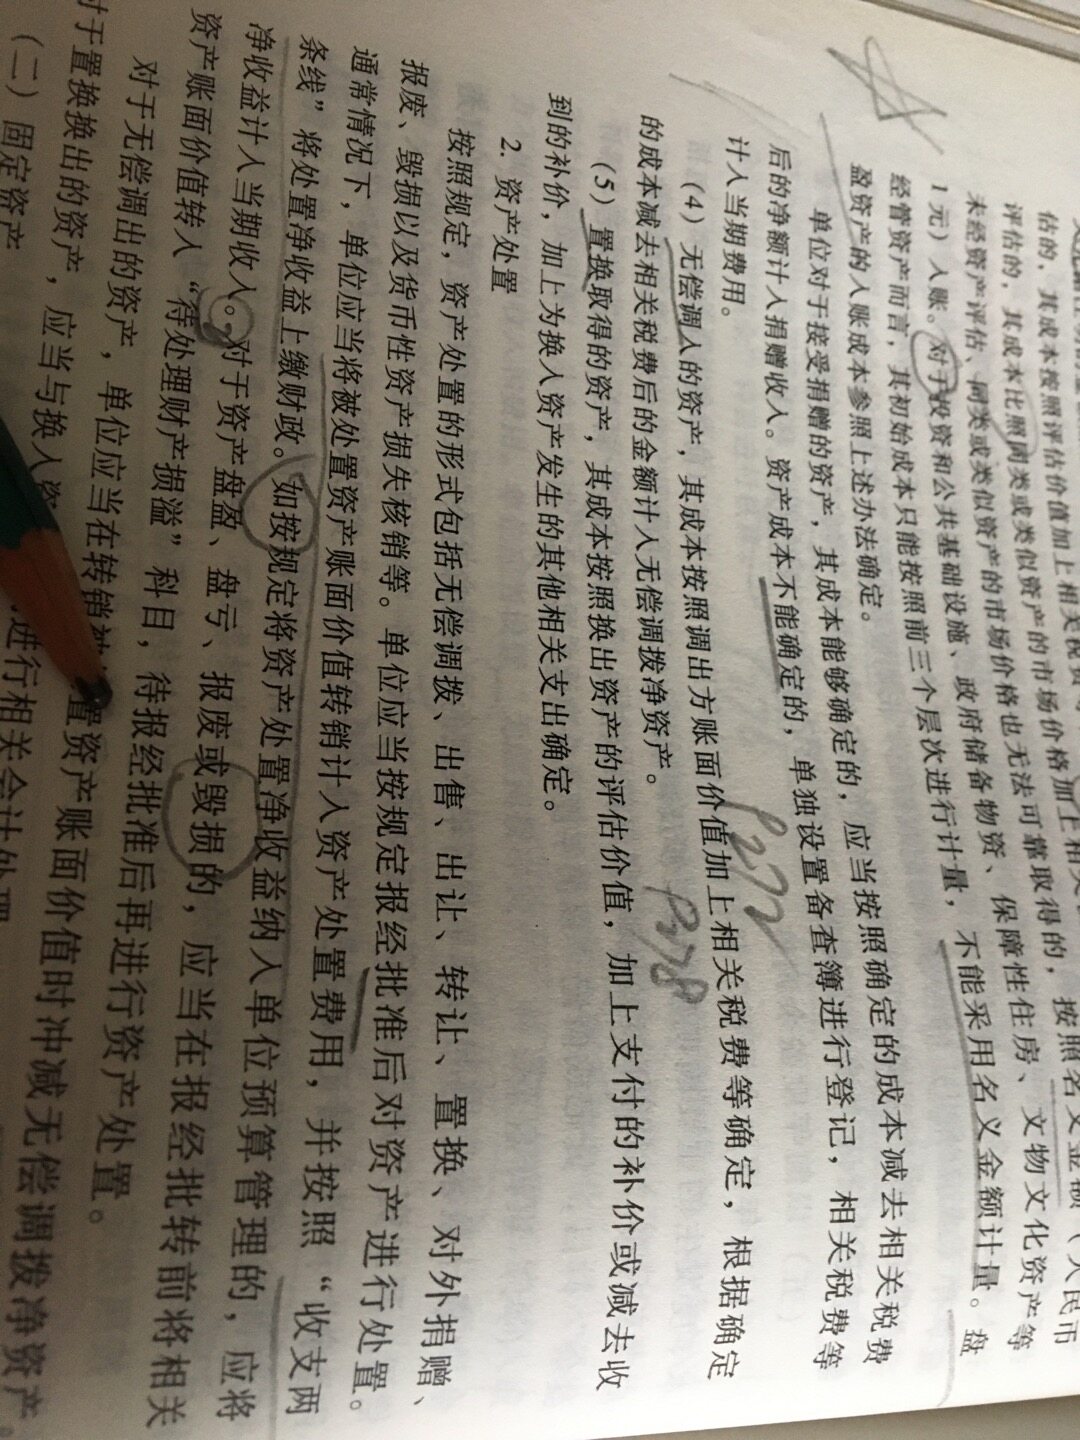 估的，其成本按照评估价值加上相关税费
评估的，其成本比照同类或类似资产的市场价格加上相关
未经资产评估、同类或类似资产的市场价格也无法可靠取得的，按照名义金额（人民币
1元）入账。对于投资和公共基础设施、政府储备物资、保障性住房、文物文化资产等
经管资产而言，其初始成本只能按照前三个层次进行计量，不能采用名义金额计量。盘
盈资产的入账成本参照上述办法确定。
单位对于接受捐赠的资产，其成本能够确定的，应当按照确定的成本减去相关税费
后的净额计入捐赠收入。资产成本不能确定的，单独设置备查簿进行登记，相关税费等
计入当期费用。
（4）无偿调入的资产，其成本按照调出方账面价值加上相关税费等确定，根据确定
的成本减去相关税费后的金额计入无偿调拨净资产。
（5）置换取得的资产，其成本按照换出资产的评估价值，加上支付的补价或减去收
到的补价，加上为换入资产发生的其他相关支出确定。
P272
P278
2. 资产处置
按照规定，资产处置的形式包括无偿调拨、出售、出让、转让、置换、对外捐赠、
报废、毁损以及货币性资产损失核销等。单位应当按规定报经批准后对资产进行处置。
通常情况下，单位应当将被处置资产账面价值转销计入资产处置费用，并按照“收支两
条线”将处置净收益上缴财政。如按规定将资产处置净收益纳入单位预算管理的，应将
净收益计入当期收入。对于资产盘盈、盘亏、报废或毁损的，应当在报经批转前将相关
资产账面价值转入“待处理财产损溢”科目，待报经批准后再进行资产处置。
对于无偿调出的资产，单位应当在转销被 置资产账面价值时冲减无偿调拨净资产。
对于置换换出的资产，应当与换入资 进行相关会计处理
（二）固定资产